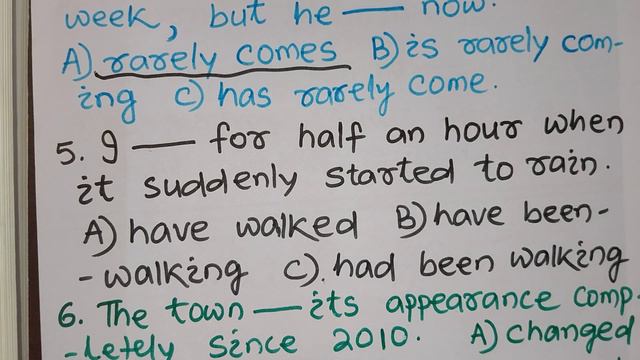 week, but he — now.
A) rarely comes B) is rarely com-
ing C) has rarely come.
5. I — for half an hour when
it suddenly started to rain.
A) have walked B) have been-
- walking C) had been walking
6. The town — its appearance comp-
-letely since 2010. A) changed